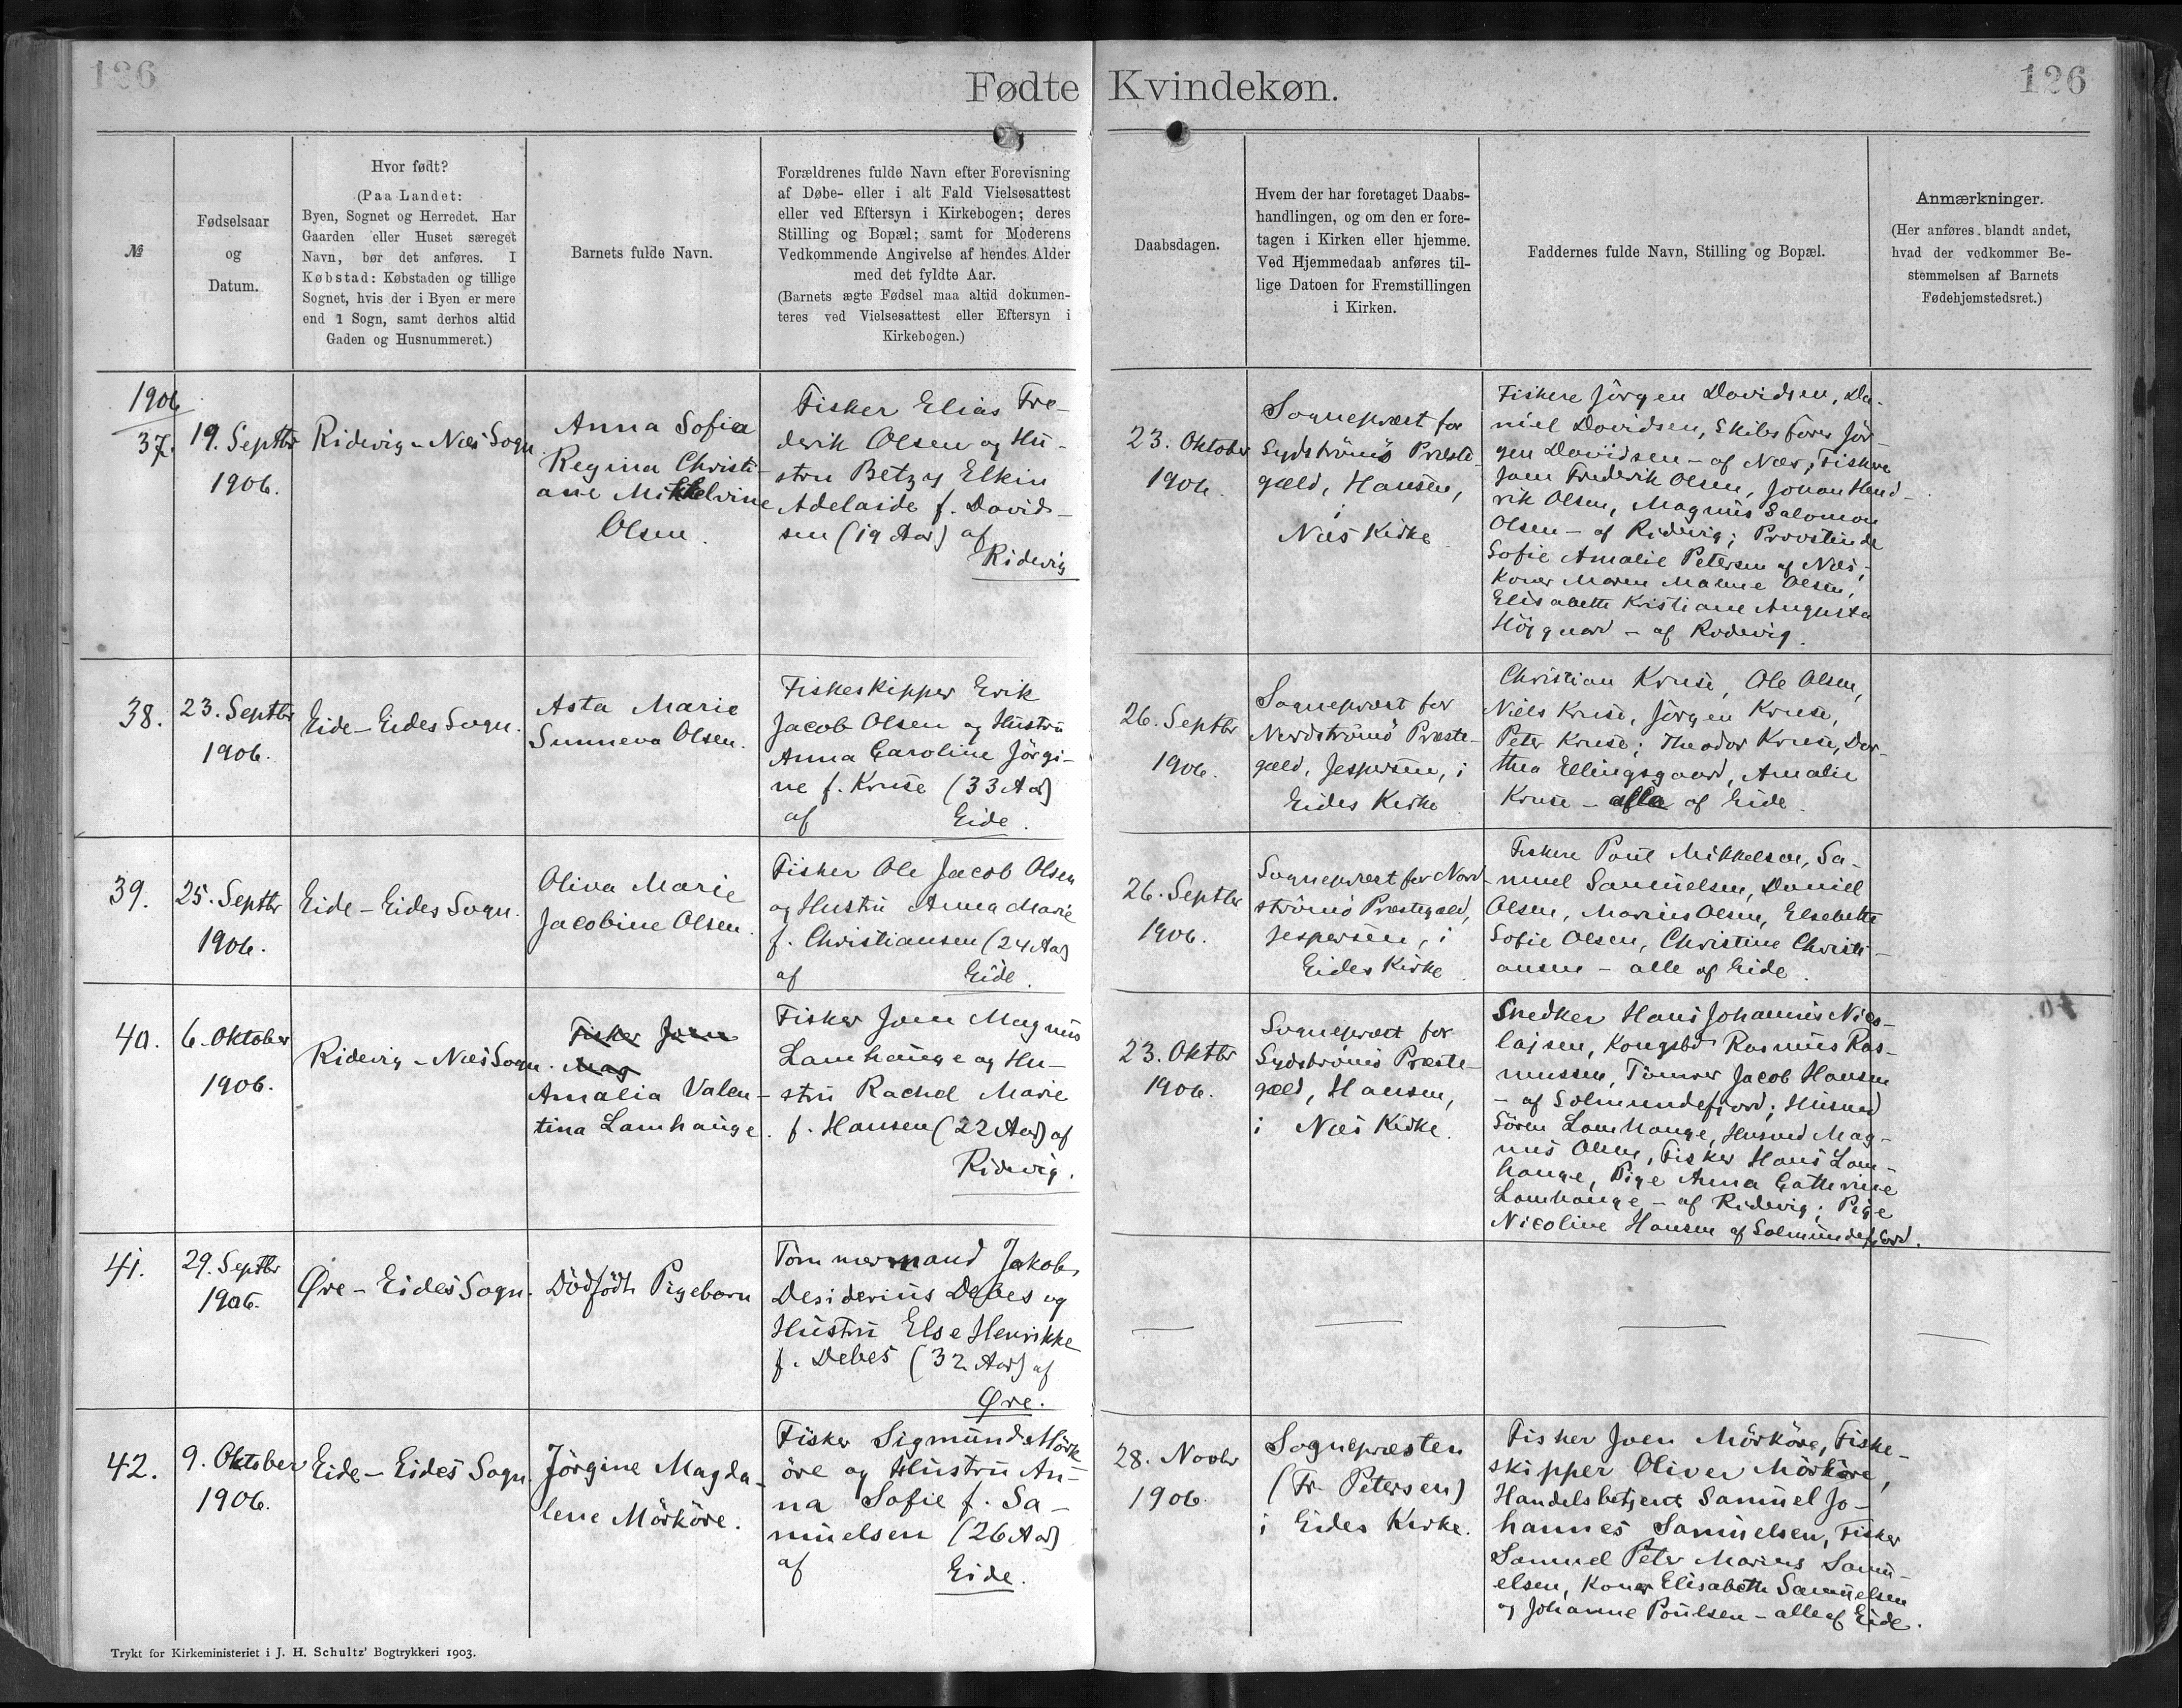 126
Fødte Kvindekøn.
126
№
Fødselsaar
og
Datum.
Hvor født?
(Paa Landet:
Byen, Sognet og Herredet. Har
Gaarden eller Huset særeget
Navn, bør det anføres. I
Købstad: Købstaden og tillige
Sognet, hvis der i Byen er mere
end 1 Sogn, samt derhos altid
Gaden og Husnummeret.)
Barnets fulde Navn.
Forældrenes fulde Navn efter Forevisning
af Døbe- eller i alt Fald Vielsesattest
eller ved Eftersyn i Kirkebogen; deres
Stilling og Bopæl; samt for Moderens
Vedkommende Angivelse af hendes Alder
med det fyldte Aar.
(Barnets ægte Fødsel maa altid dokumen-
teres ved Vielsesattest eller Eftersyn i
Kirkebogen.)
Daabsdagen.
Hvem der har foretaget Daabs-
handlingen, og om den er fore-
tagen i Kirken eller hjemme.
Ved Hjemmedaab anføres til-
lige Datoen for Fremstillingen
i Kirken.
Faddernes fulde Navn, Stilling og Bopæl.
Anmærkninger.
(Her anføres blandt andet,
hvad der vedkommer Be-
stemmelsen af Barnets
Fødehjemstedsret.)
1906
37.
19. Septbr
1906.
Ridevig - Næs Sogn.
Anna Sofia
Regina Christi-
ane Mikkelvine
Olsen.
Fisker Elias Fre-
derik Olsen og Hu-
stru Betzy Elkin
Adelaide f. David-
sen (19 Aar) af
Ridevig
23. Oktober
1906.
Sognepræst for
Sydströmö Præste-
gæld, Hansen,
i
Næs Kirke
Fiskere Jörgen Davidsen, Da-
niel Davidsen, Skibsförer Jör-
gen Davidsen - af Næs; Fiskere
Joen Frederik Olsen, Johan Hend-
rik Olsen, Magnus Salomon
Olsen - af Ridevig; Provstinde
Sofie Amalie Petersen af Næs;
Koner Maren Malene Olsen,
Elisabette Kristiane Augusta
Höjgaard - af Ridevig.
38.
23. Septbr
1906.
Eide - Eides Sogn.
Asta Marie
Sunneva Olsen.
Fiskeskipper Erik
Jacob Olsen og Hustru
Anna Caroline Jörgi-
ne f. Kruse (33 Aar)
af Eide.
26. Septbr
1906.
Sognepræst for
Nordströmö Præste-
gæld, Jespersen, i
Eides Kirke
Christian Kruse, Ole Olsen,
Niels Kruse, Jörgen Kruse,
Peter Kruse; Theodor Kruse, Dor-
thea Ellingsgaard, Amalie
Kruse - alle af Eide.
39.
25. Septbr
1906.
Eide - Eides Sogn.
Oliva Marie
Jacobine Olsen.
Fisker Ole Jacob Olsen
og Hustru Anna Marie
f. Christiansen (24 Aar)
af Eide.
26. Septbr
1906.
Sognepræst for Nord-
strömö Præstegæld,
Jespersen, i
Eides Kirke.
Fiskere Poul Mikkelsen, Sa-
muel Samuelsen, Daniel
Olsen, Marius Olsen, Elsebette
Sofie Olsen, Christine Christi-
ansen - alle af Eide.
40.
6. Oktober
1906.
Ridevig - Næs Sogn.
Fisker Joen
Mag
Amalia Valen-
tina Lamhauge.
Fisker Joen Magnus
Lamhauge og Hu-
stru Rachel Marie
f. Hansen (22 Aar) af
Ridevig.
23. Oktbr
1906.
Sognepræst for
Sydströmö Præste-
gæld, Hansen,
i Næs Kirke.
Snedker Hans Johannes Nico-
lajsen, Kongsbd Rasmus Ras-
mussen, Tömrer Jacob Hansen
- af Solmundefjord; Husmd
Sören Lamhauge, Husmd Mag-
nus Olsen, Fisker Hans Lam-
hauge, Pige Anna Catherine
Lamhauge - af Ridevig; Pige
Nicoline Hansen af Solmundefjord.
41.
29. Septbr
1906.
Øre - Eides Sogn.
Dödfödt Pigebarn
Tömmermand Jakob
Desiderius Debes og
Hustru Else Henrikke
f. Debes (32 Aar) af
Øre.
42.
9. Oktober
1906.
Eide - Eides Sogn.
Jörgine Magda-
lene Mörköre.
Fisker Sigmund Mörk-
öre og Hustru An-
na Sofie f. Sa-
muelsen (26 Aar)
af Eide.
28. Novbr
1906.
Sognepræsten
(Fr. Petersen)
i Eides Kirke.
Fisker Joen Mörköre, Fiske-
skipper Oliver Mörköre,
Handelsbetjent Samuel Jo-
hannes Samuelsen, Fisker
Samuel Peter Marius Samu-
elsen, Koner Elisabeth Samuelsen
og Johanne Poulsen - alle af Eide.
Trykt for Kirkeministeriet i J. H. Schultz' Bogtrykkeri 1903.